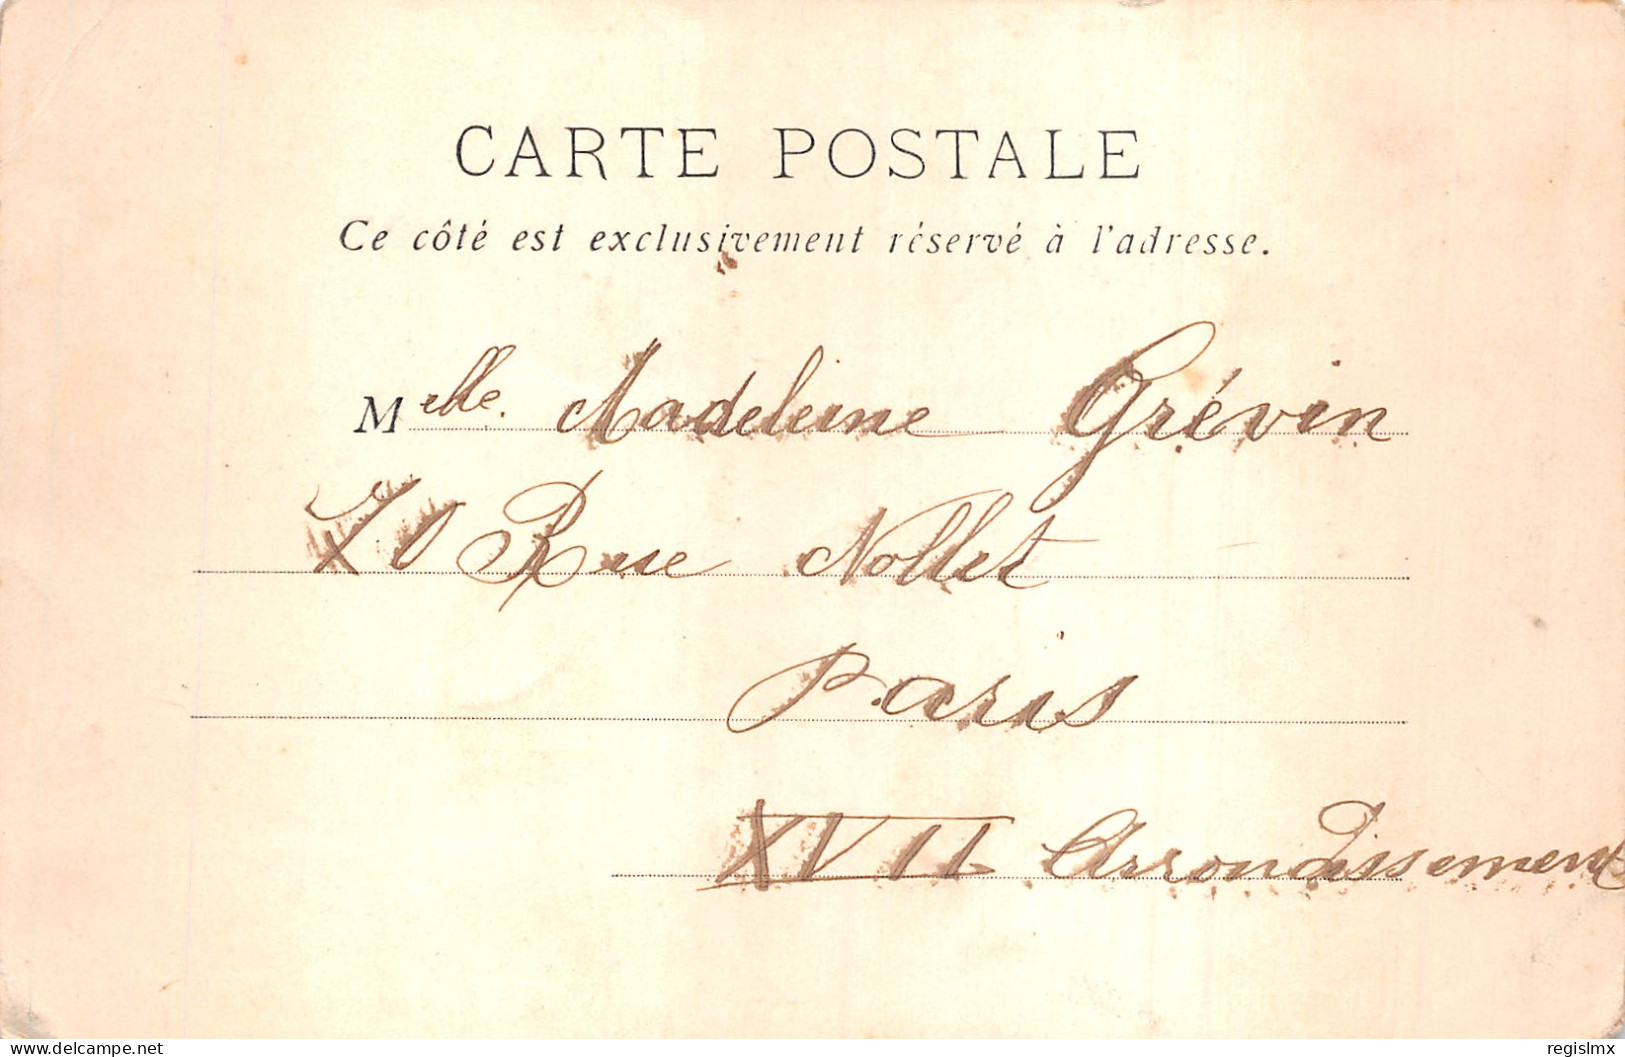 CARTE POSTALE
Ce côté est exclusivement réservé à l'adresse.
Melle. Madeleine Grévin
70 Rue Nollet
Paris
XVII Arrondissement
www.delcampe.net
regislmx